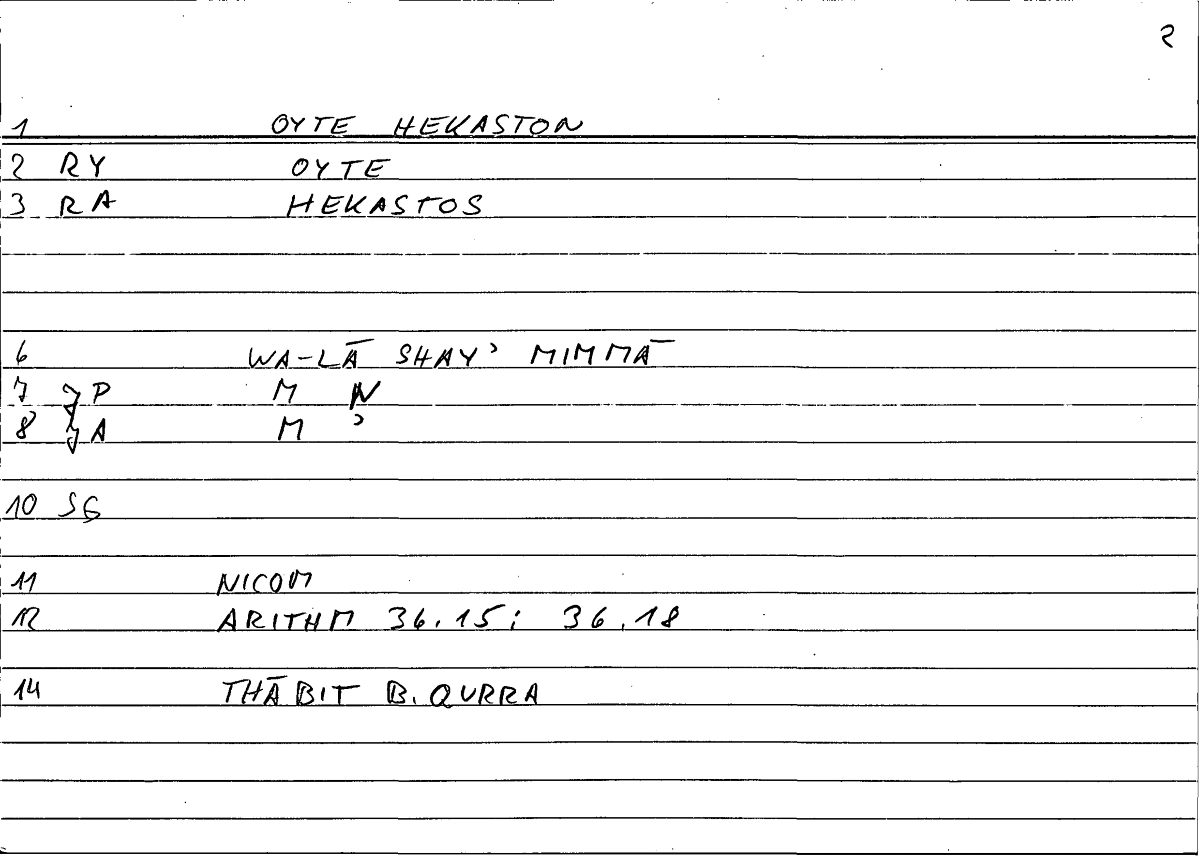 2
1 OYTE HEKASTON
2 RY OYTE
3 RA HEKASTOS
6 WA-LĀ SHAY' MIMMĀ
7 JP M N
8 JA M '
10 SG
11 NICOM
12 ARITHM 36.15; 36.18
14 THĀBIT B. QURRA